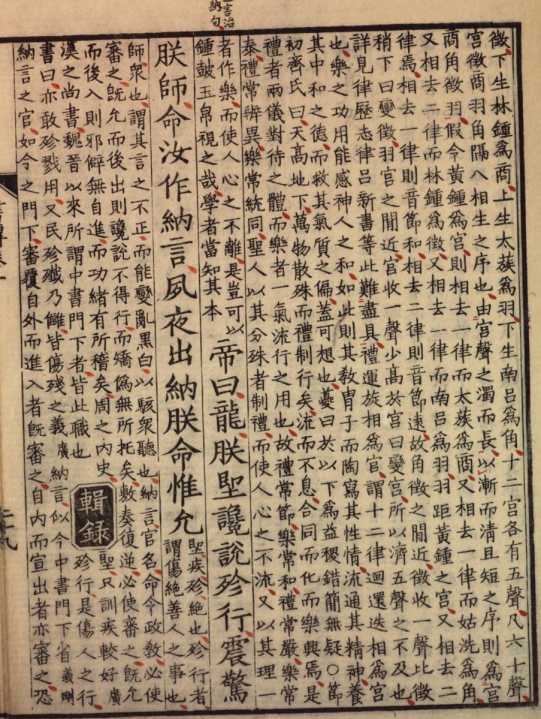 徵下生林鍾爲商上生太蔟爲羽下生南呂爲角十二宮各有五聲凡六十聲
宮徵商羽角隔八相生之序也由宮聲之濁而長以漸而清且短之序則爲宮
商角徵羽假令黃鍾爲宮則相去一律而太蔟爲商又相去一律而姑洗爲角
又相去二律而林鍾爲徵又相去一律而南呂爲羽羽距黃鍾之宮又相去二
律焉相去一律則音節和相去二律則音節遠故角徵之閒近徵收一聲比徵
稍下曰變徵羽宮之閒近宮收一聲少高於宮曰變宮所以濟五聲之不及也
詳見律歷志律呂新書等此難盡具禮運旋相爲宮謂十二律迴還迭相爲宮
也樂之功用能感神人之和如此則其敎冑子而陶寫其性情流通其精神養
其中和之德而救其氣質之偏蓋可想也夔曰於以下爲益稷錯簡無疑○節
初齊氏曰天高地下萬物散殊而禮制行矣流而不息合同而化而樂興焉是
禮者兩儀對待之體而樂者一氣流行之用也故禮常節樂常和禮常嚴樂常
泰禮常辨異樂常統同聖人以其分殊者制禮而使人心之不流又以其理一
者作樂而使人心之不離是豈可以
鍾鼓玉帛視之哉學者當知其本
帝曰龍朕聖讒說殄行震驚
朕師命汝作納言夙夜出納朕命惟允
聖疾殄絶也殄行者
謂傷絶善人之事也
師眾也謂其言之不正而能變亂黑白以駭眾聽也納言官名命令政敎必使
審之旣允而後出則讒說不得行而矯僞無所托矣敷奏復逆必使審之旣允
而後入則邪僻無自進而功緒有所稽矣周之內史
漢之尚書魏晉以來所謂中書門下者皆此職也
輯錄
聖只訓疾較好廣
殄行是傷人之行
書曰亦敢殄戮用乂民殄殲乃讎皆傷殘之義廣納言似今中書門下省義剛
納言之官如今之門下審覆自外而進入者旣審之自內而宣出者亦審之恐